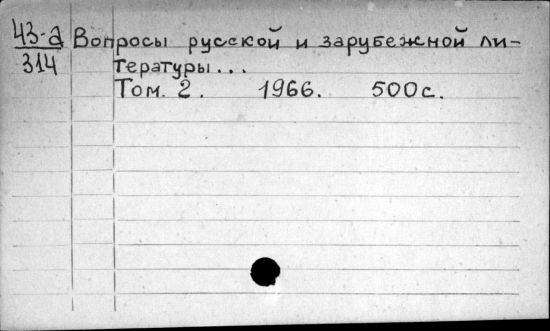 43-а Вопросы русской и зарубежной ли-
314 тературы...
Том. 2. 1966. 500с.